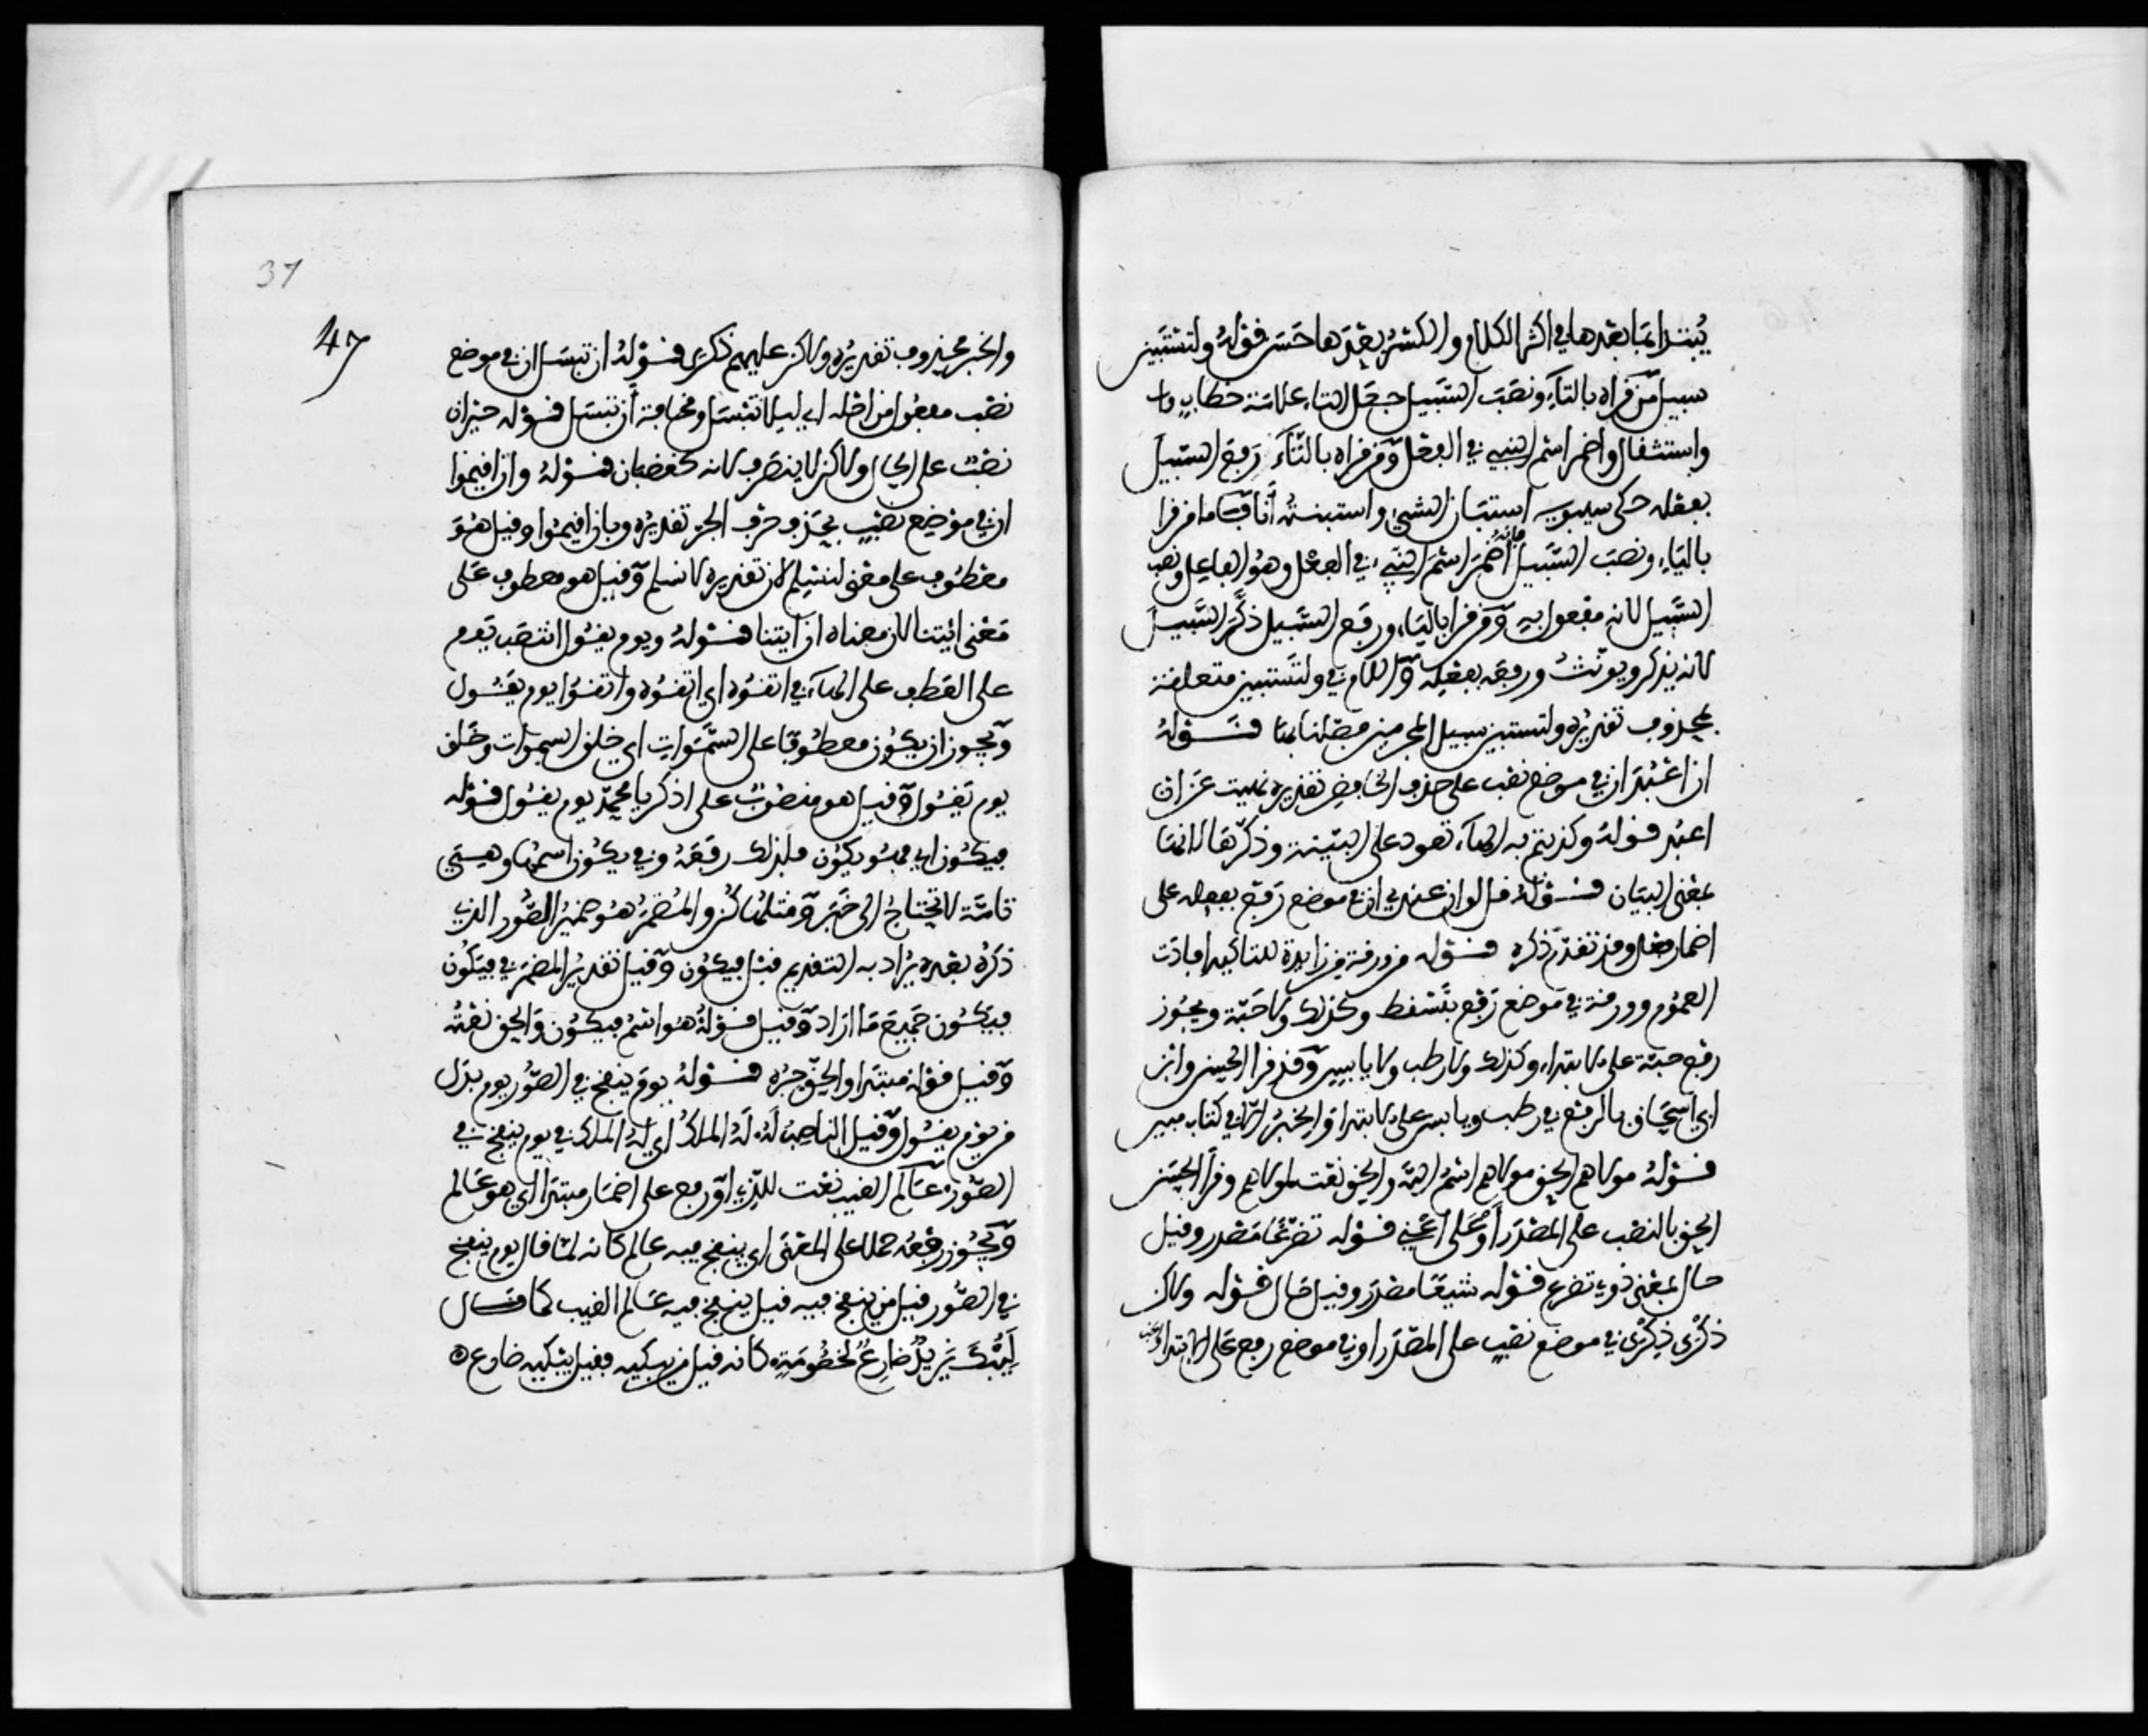 يُبتدا بما بعدها في اكثر الكلام والكسر بعدها حسن قوله ولتستبين
سبيل من قراه بالتاء ونصب السبيل جعل التاء علامة خطاب
واستقبال واضمر اسم النبي في الفعل ومن قراه بالتاء رفع السبيل
بفعله حكى سيبويه استبان الشيء واستبنته أنا فاما من قرا
بالياء ونصب السبيل فانه أضمر اسم النبي في الفعل وهو الفاعل ونصب
السبيل لانه مفعول به ومن قرا بالياء ورفع السبيل ذكر السبيل
لانه يذكر ويؤنث ورفعه بفعله واللام في ولتستبين متعلقة
بمحذوف تقديره ولتستبين سبيل المجرمين فصلناها قوله
ان اعبد ان في موضع نصب على حذف الخافض تقديره نهيت عن ان
اعبد قوله وكذبتم به الهاء تعود على البينة وذكرها لانها
بمعنى البيان قوله قل لو ان عندي ان في موضع رفع بفعله على
اضمار فعل وقد تقدم ذكره قوله من ورقة من زايدة للتاكيد افادت
العموم وورقة في موضع رفع بتسقط وكذلك ولا حبة ويجوز
رفع حبة على الابتداء وكذلك ولا رطب ولا يابس وقد قرا الحسن وابن
ابي اسحاق بالرفع في رطب ويابس على الابتدا والخبر الا في كتاب مبين
قوله مولاهم الحق مولاهم اسم الله والحق نعت لمولاهم وقرا الحسن
الحق بالنصب على المصدر أو على أعني قوله تضرعا مصدر وقيل
حال بمعنى ذوي تضرع قوله شيعا مصدر وقيل حال قوله ولاكن
ذكرى ذكرى في موضع نصب على المصدر او في موضع رفع على الابتدا
37
47
والخبر محذوف تقديره ولاكن عليهم ذكرى قوله ان تبسل ان في موضع
نصب مفعول من اجله اي ليلا تبسل ومخافة أن تبسل قوله حيران
نصب على الحال ولاكن لا ينصرف لانه كغضبان قوله وان اقيموا
ان في موضع نصب بحذف حرف الجر تقديره وبان اقيموا وقيل هو
معطوف على معنى لنسلم لان تقديره لان نسلم وقيل هو معطوف على
معنى ائتنا لان معناه ان ايتنا قوله ويوم يقول انتصب يوم
على العطف على الهاء في اتقوه اي اتقوه واتقوا يوم يقول
ويجوز ان يكون معطوفا على السموات اي خلق السموات وخلق
يوم يقول وقيل هو منصوب على اذكر يا محمد يوم يقول قوله
فيكون اي فهو يكون فلذلك رفعه وفي يكون اسمها وهي
تامة لا تحتاج الى خبر ومثلها كن والمضمر هو ضمير الصور الذي
ذكره بعده يراد به التقديم قبل فيكون وقيل تقدير المضمر في فيكون
فيكون جميع ما اراد وقيل قوله هو اسم فيكون والحق نعته
وقيل قوله مبتدا والحق خبره قوله يوم ينفخ في الصور يوم بدل
من يوم يقول وقيل الناصب له له الملك اي له الملك في يوم ينفخ في
الصور عالم الغيب نعت للذي او رفع على اضمار مبتدا اي هو عالم
ويجوز رفعه حملا على المعنى اي ينفخ فيه عالم كانه لما قال يوم ينفخ
في الصور قيل من ينفخ فيه قيل ينفخ فيه عالم الغيب كما قال
لِيُبْكَ يزيدٌ ضارعٌ لخصومةٍ كانه قيل من يبكيه فقيل يبكيه ضارع